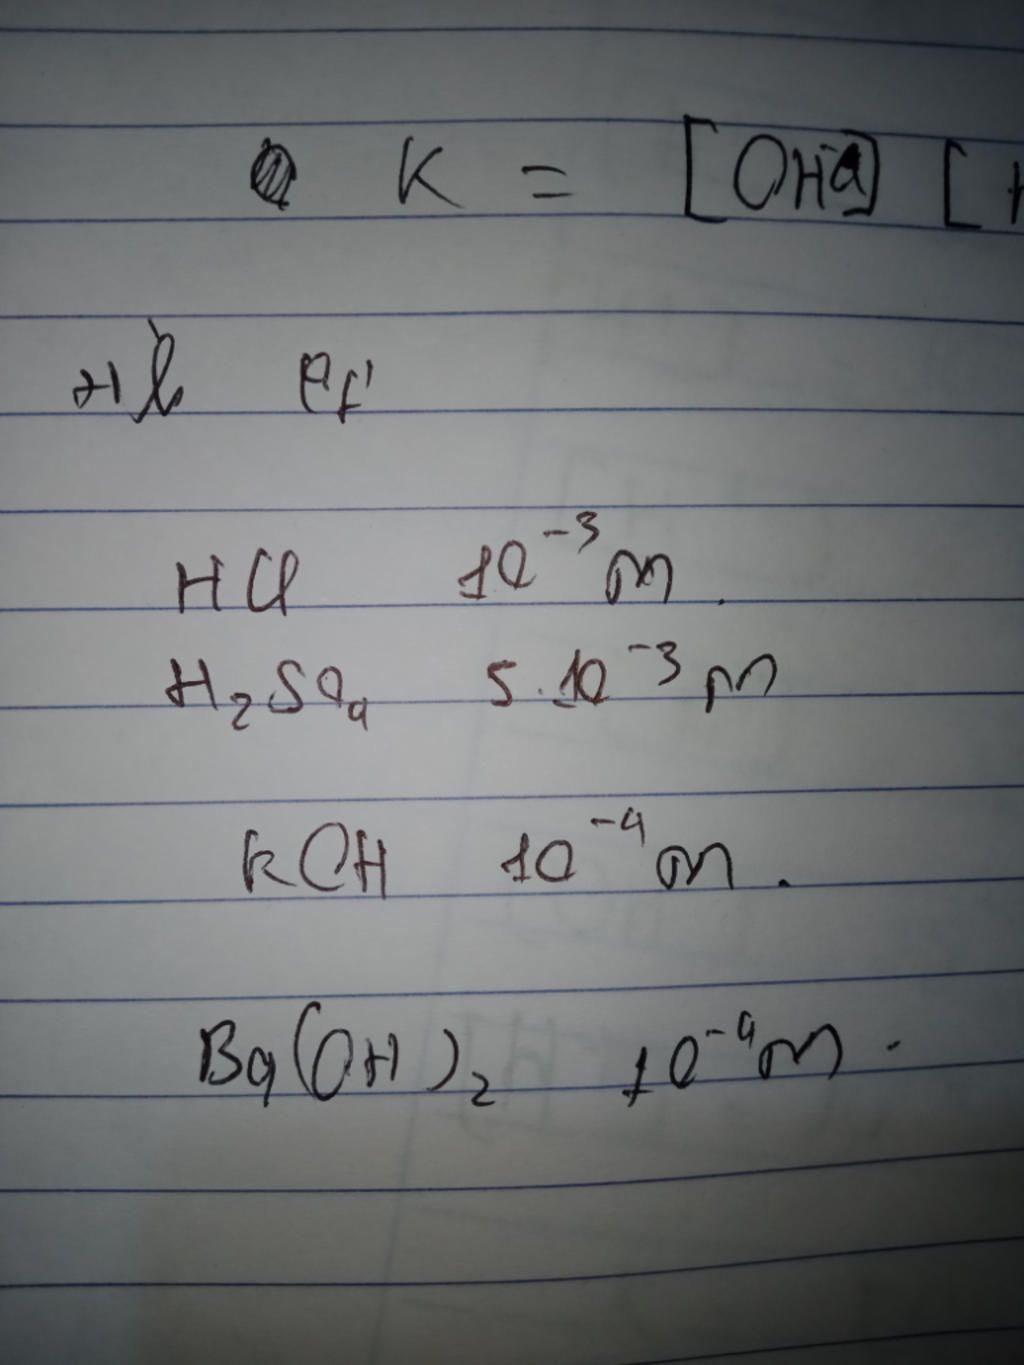 K = [OH-] [
HCl 10⁻³ m.
H₂SO₄ 5.10⁻³ m
KOH 10⁻⁴ m.
Ba(OH)₂ 10⁻⁴ m.